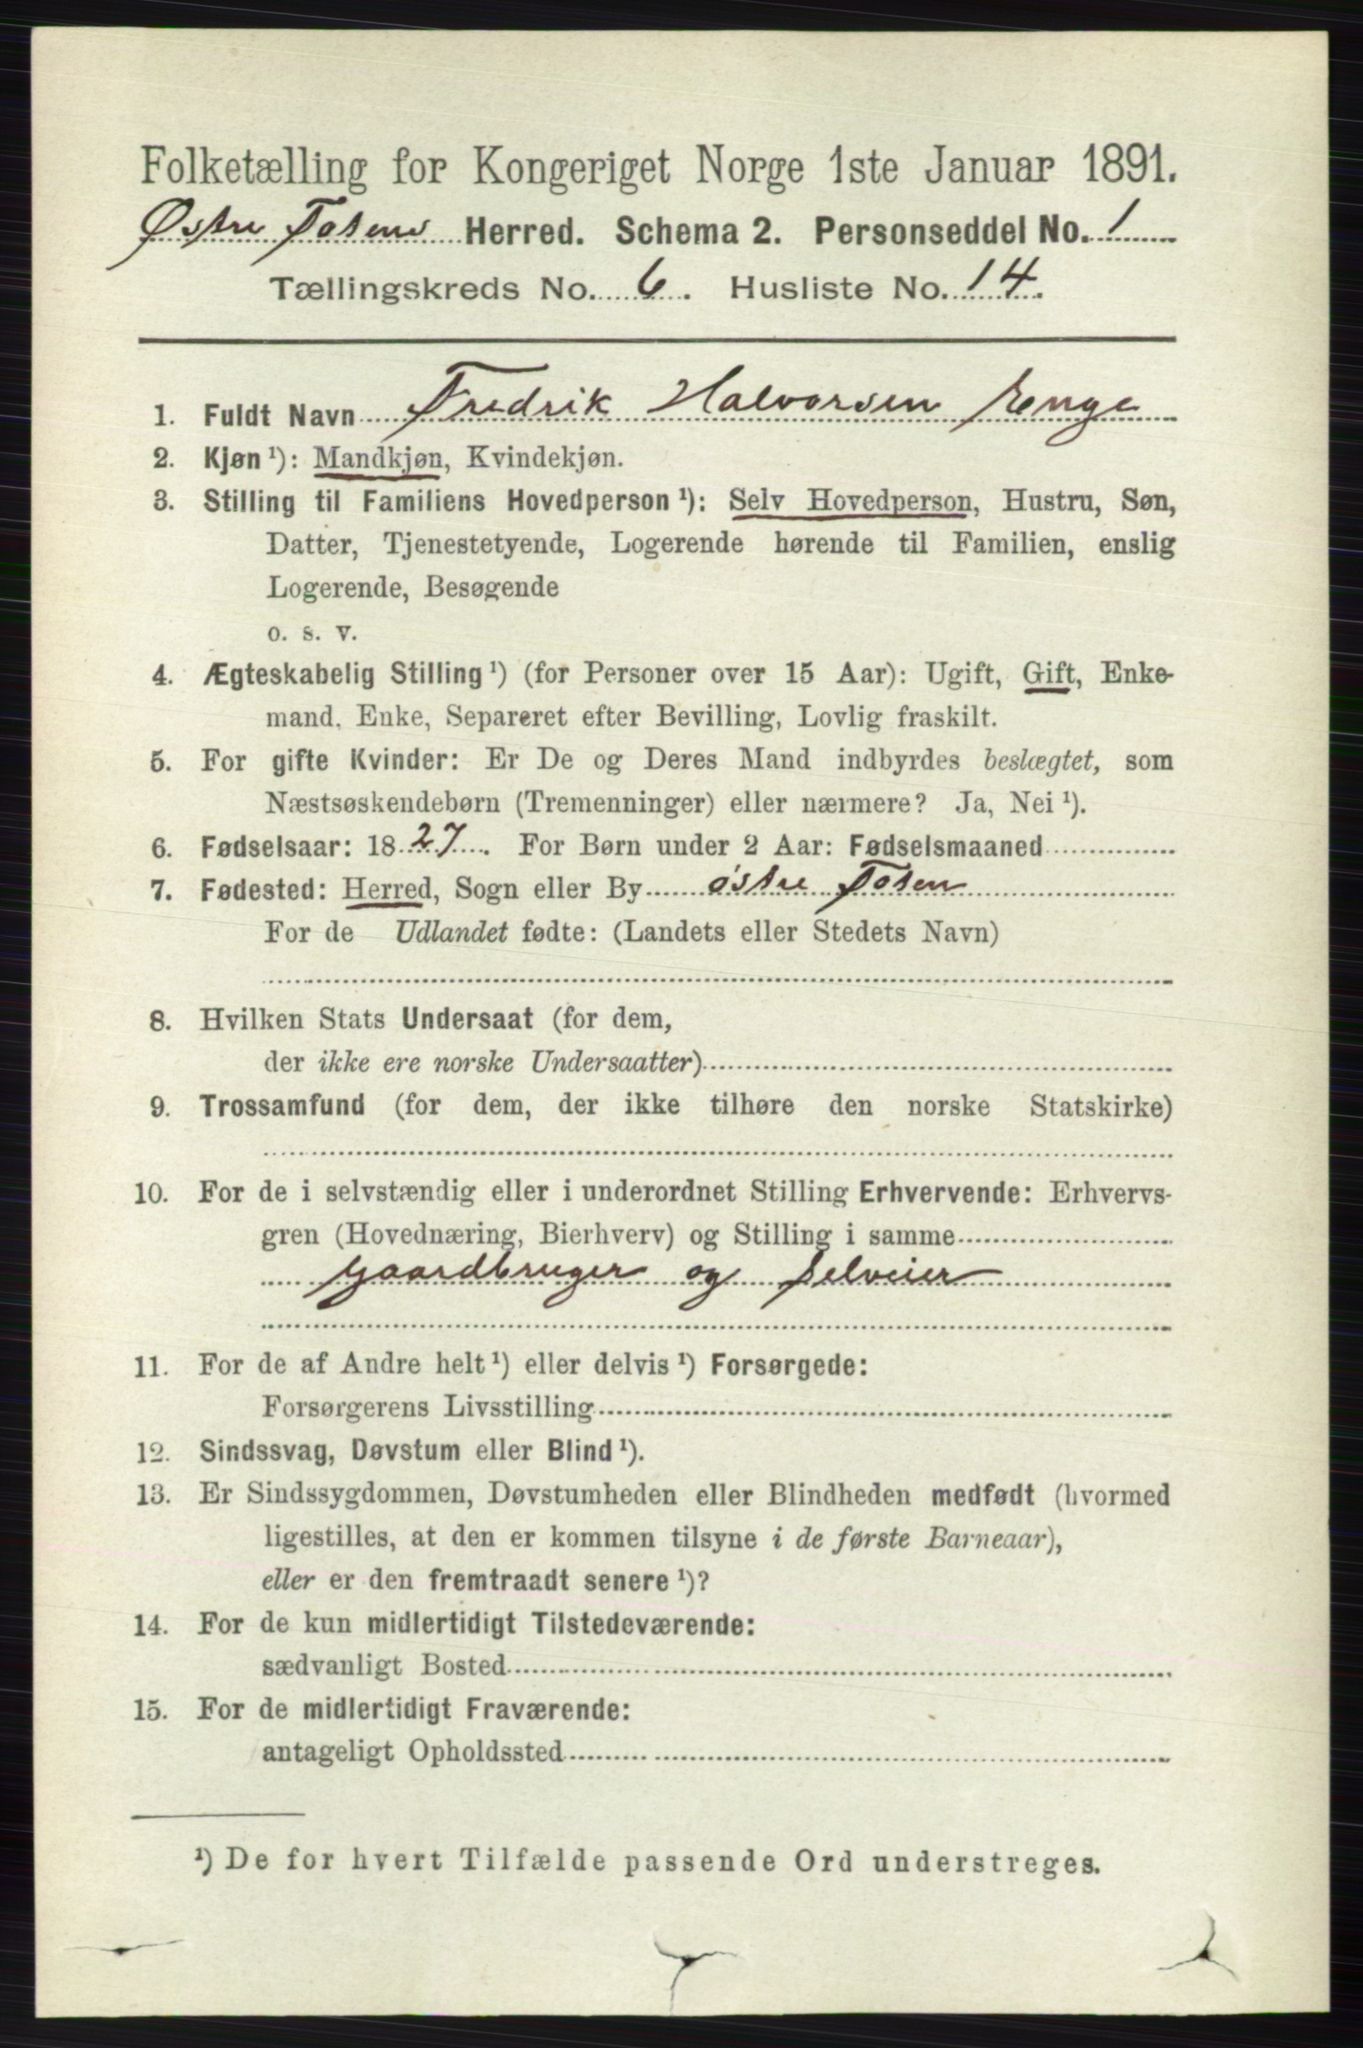 Folketælling for Kongeriget Norge 1ste Januar 1891.
Østre Totens Herred. Schema 2. Personseddel No. 1
Tællingskreds No. 6. Husliste No. 14.
1. Fuldt Navn Fredrik Halvorsen Enge
2. Kjøn ¹): Mandkjøn, Kvindekjøn.
3. Stilling til Familiens Hovedperson ¹): Selv Hovedperson, Hustru, Søn,
Datter, Tjenestetyende, Logerende hørende til Familien, enslig
Logerende, Besøgende
o. s. v.
4. Ægteskabelig Stilling ¹) (for Personer over 15 Aar): Ugift, Gift, Enke-
mand, Enke, Separeret efter Bevilling, Lovlig fraskilt.
5. For gifte Kvinder: Er De og Deres Mand indbyrdes beslægtet, som
Næstsøskendebørn (Tremenninger) eller nærmere? Ja, Nei ¹).
6. Fødselsaar: 1827. For Børn under 2 Aar: Fødselsmaaned
7. Fødested: Herred, Sogn eller By østre Toten
For de Udlandet fødte: (Landets eller Stedets Navn)
8. Hvilken Stats Undersaat (for dem,
der ikke ere norske Undersaatter)
9. Trossamfund (for dem, der ikke tilhøre den norske Statskirke)
10. For de i selvstændig eller i underordnet Stilling Erhvervende: Erhvervs-
gren (Hovednæring, Bierhverv) og Stilling i samme
Gaardbruger og Selveier
11. For de af Andre helt ¹) eller delvis ¹) Forsørgede:
Forsørgerens Livsstilling
12. Sindssvag, Døvstum eller Blind ¹).
13. Er Sindssygdommen, Døvstumheden eller Blindheden medfødt (hvormed
ligestilles, at den er kommen tilsyne i de første Barneaar),
eller er den fremtraadt senere ¹)?
14. For de kun midlertidigt Tilstedeværende:
sædvanligt Bosted
15. For de midlertidigt Fraværende:
antageligt Opholdssted
¹) De for hvert Tilfælde passende Ord understreges.